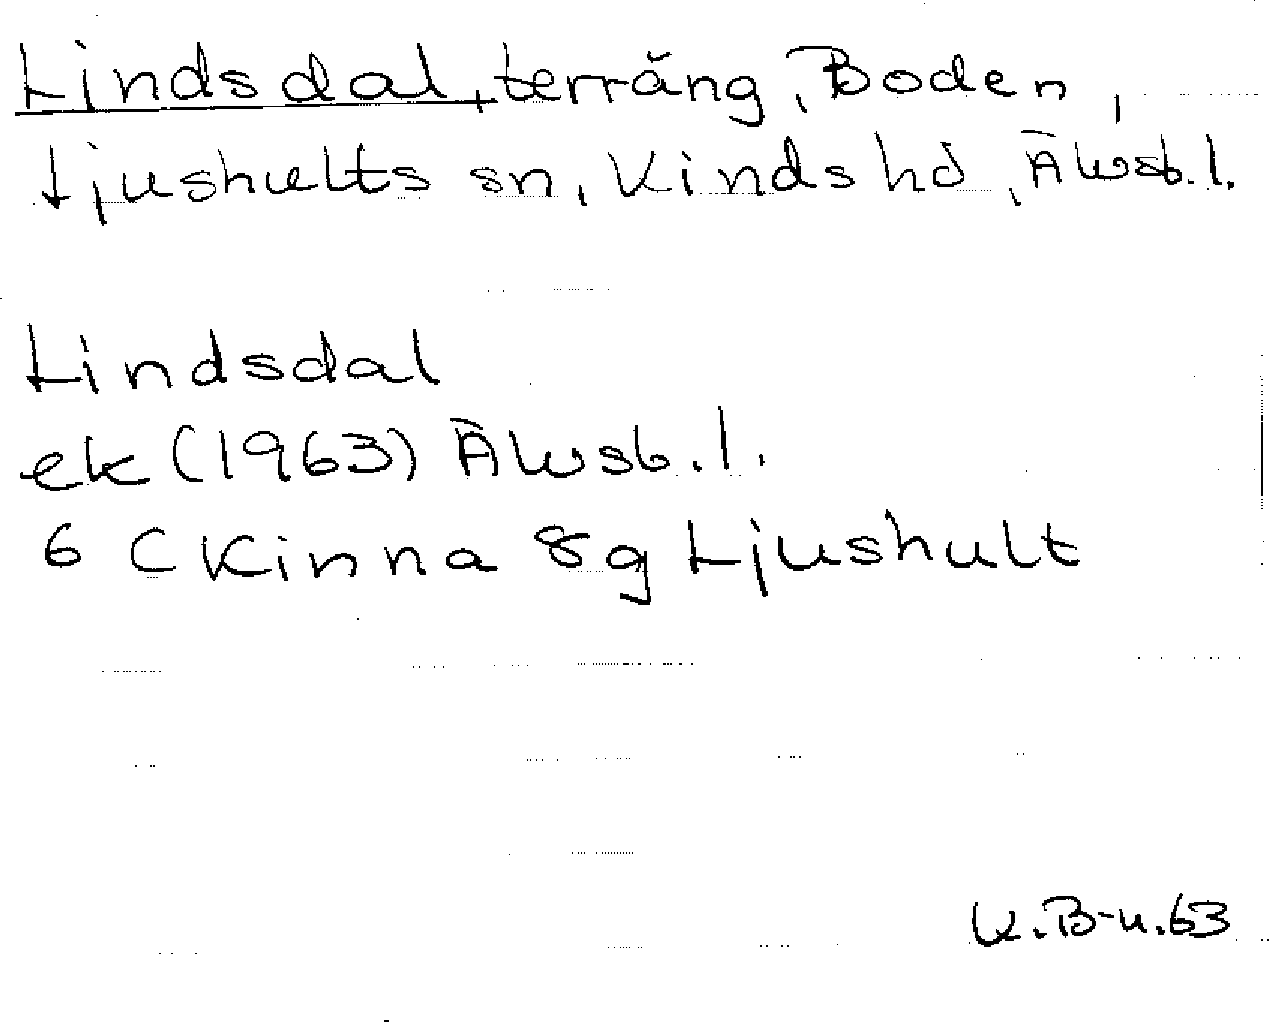 Lindsdal, terräng, Boden,
Ljushults sn, Kinds hd, Älvsb.l.
Lindsdal
ek (1963) Älvsb.l.
6 C Kinna 8g Ljushult
K.B-n.63